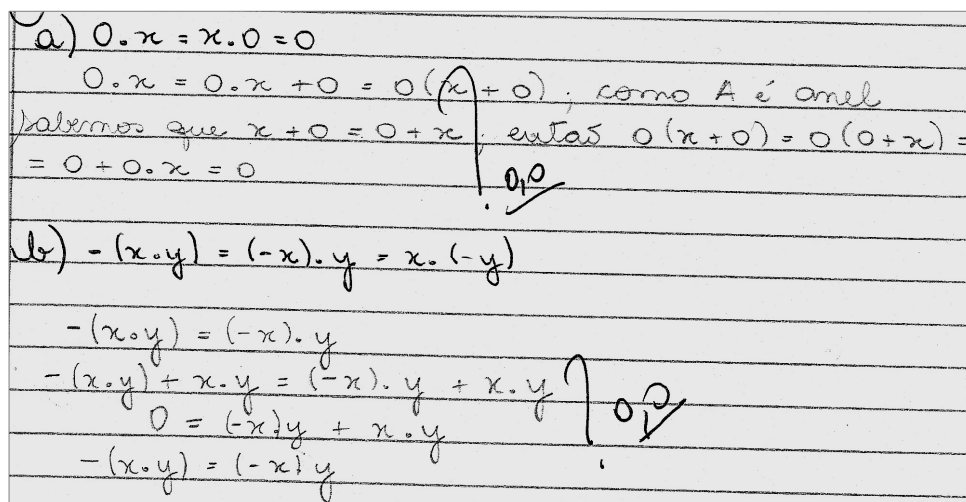 a) 0.x = x.0 = 0
0.x = 0.x + 0 = 0(x + 0); como A é anel
sabemos que x + 0 = 0 + x; então 0(x + 0) = 0(0 + x) =
= 0 + 0.x = 0
0,0
b) -(x.y) = (-x).y = x.(-y)
-(x.y) = (-x).y
-(x.y) + x.y = (-x).y + x.y
0,0
0 = (-x)y + x.y
-(x.y) = (-x)y